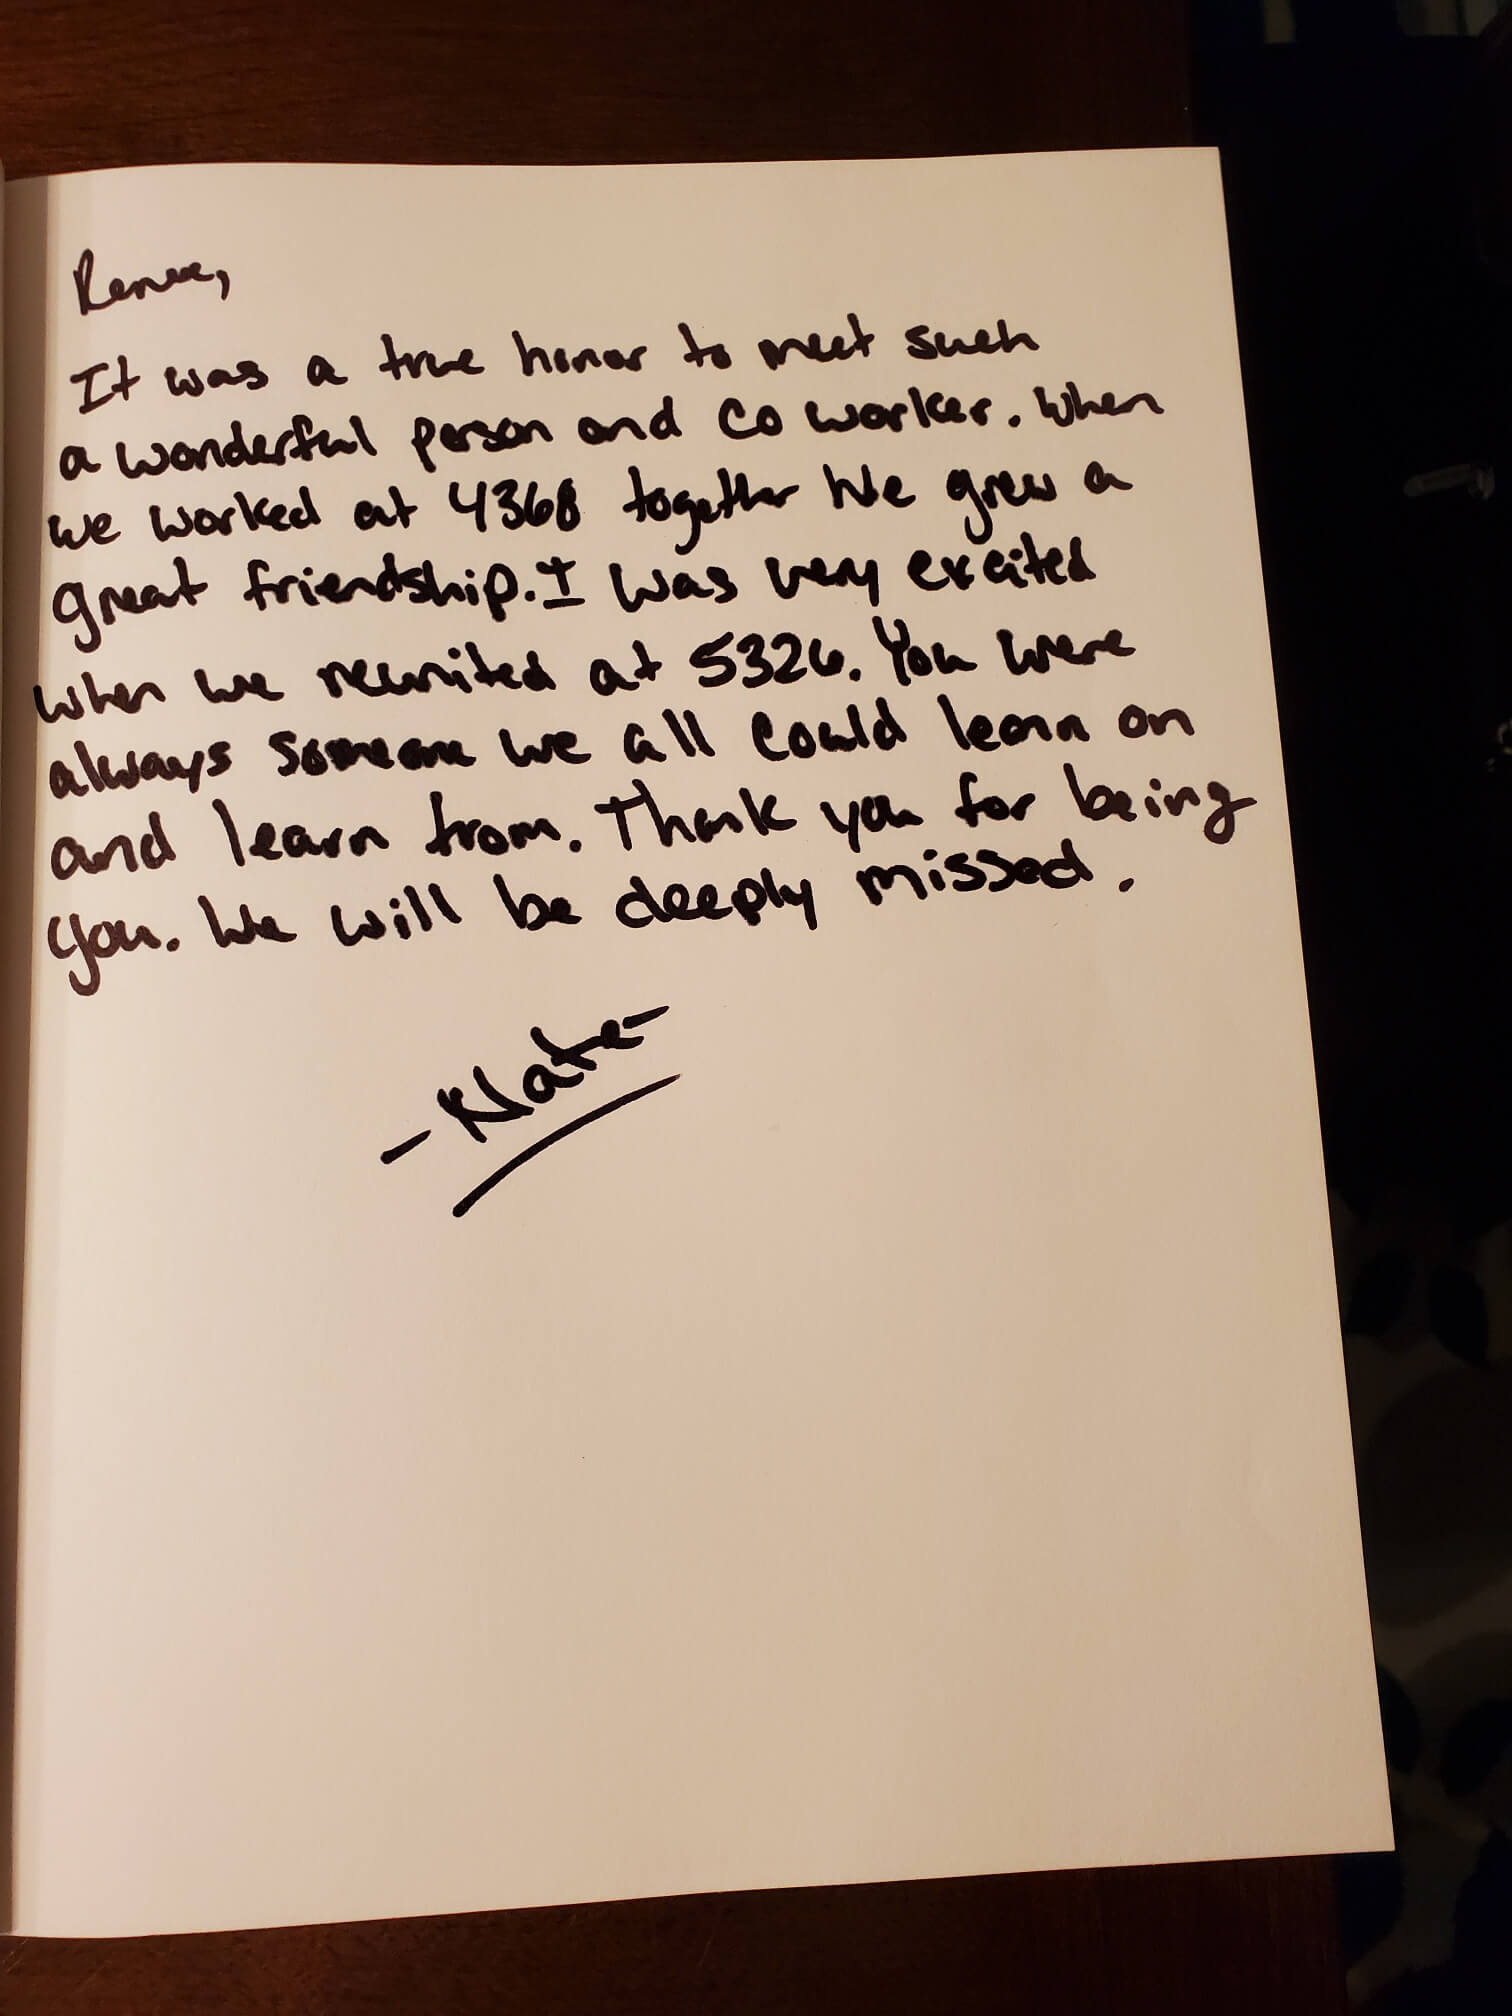 Renee,
It was a true honor to meet such
a wonderful person and co worker. When
we worked at 4368 together We grew a
great friendship. I I was very excited
when we reunited at 5326. You were
always someone we all could lean on
and learn from. Thank you for being
you. We will be deeply missed.
-Nate-